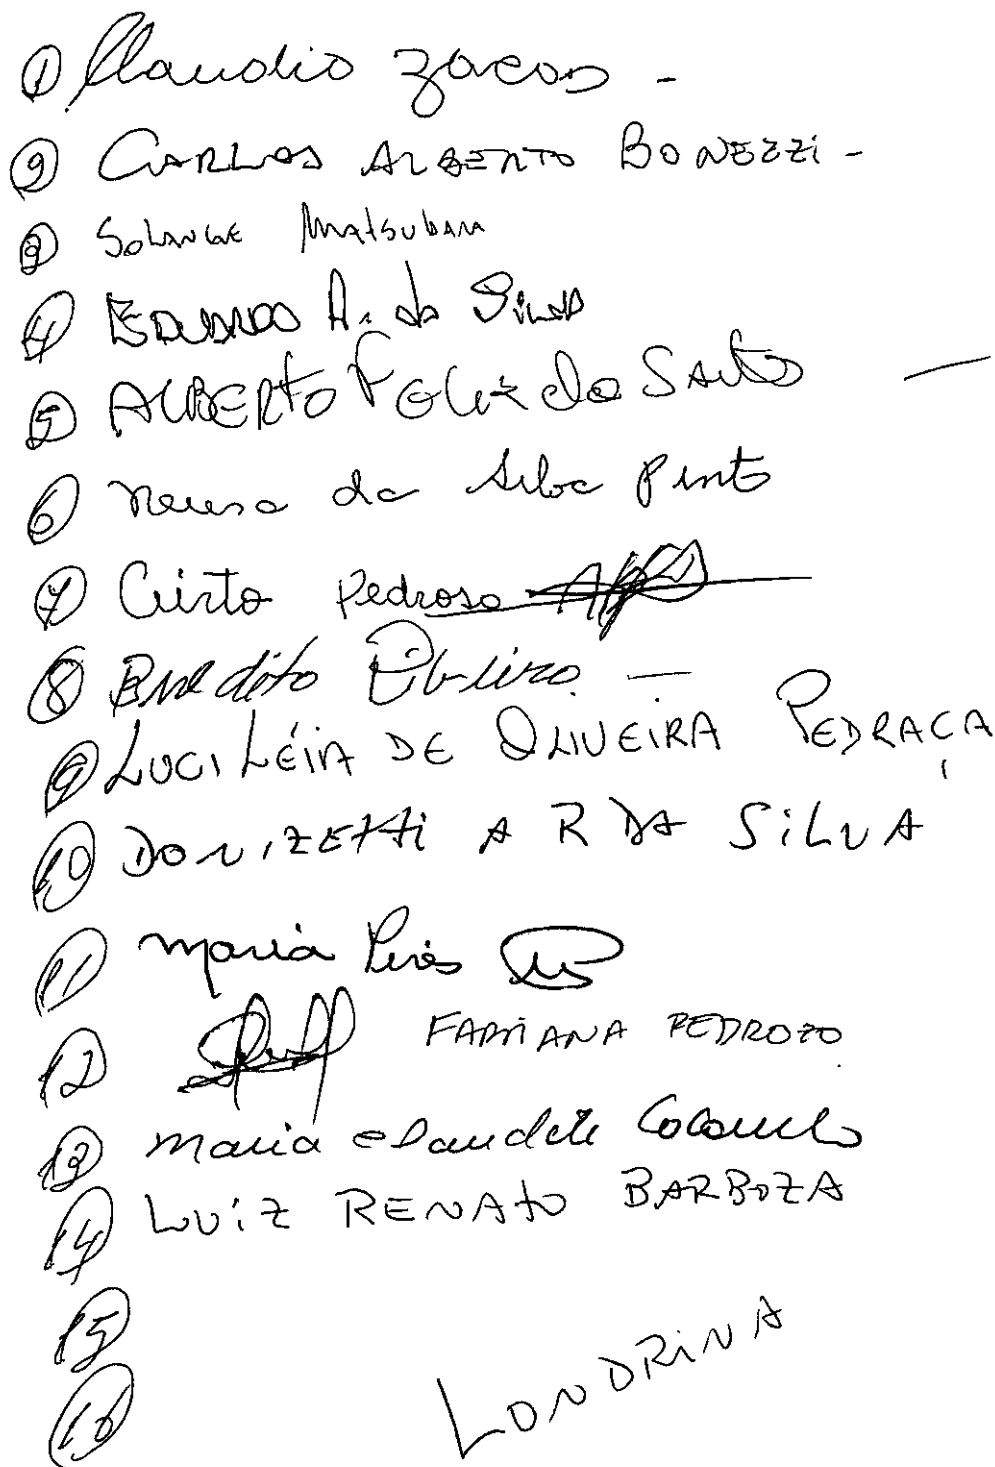 1 Claudio
2 CARLOS ALBERTO BONEZZi -
3 SOLANGE MATSUBARA
4 EDUARDO A. da Silva
5 ALBERTO Felix do Santos —
6 Neusa da Silva Pinto
7 Pedroso
8 Benedito Ribeiro. —
9 LUCILÉIA DE OLIVEIRA PEDRAÇA
10 DONIZETTi A R DA SiLVA
11 Maria Peres
12 FABIANA PEDROZO
13 Maria Claudete
14 LUiZ RENATO BARBOZA
15
16
LONDRiNA